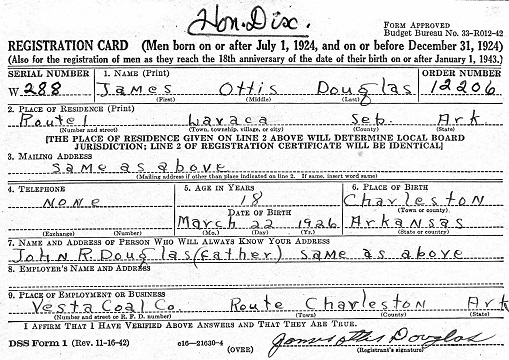 Hon. Disc.
FORM APPROVED
Budget Bureau No. 33-R012-42
REGISTRATION CARD (Men born on or after July 1, 1924, and on or before December 31, 1924)
(Also for the registration of men as they reach the 18th anniversary of the date of their birth on or after January 1, 1943.)
SERIAL NUMBER 1. NAME (Print) ORDER NUMBER
W. 288 James Ottis Douglas 12206
(First) (Middle) (Last)
2. PLACE OF RESIDENCE (Print)
Route 1 Lavaca Seb. Ark
(Number and street) (Town, township, village, or city) (County) (State)
[THE PLACE OF RESIDENCE GIVEN ON LINE 2 ABOVE WILL DETERMINE LOCAL BOARD
JURISDICTION; LINE 2 OF REGISTRATION CERTIFICATE WILL BE IDENTICAL]
3. MAILING ADDRESS
same as above
(Mailing address if other than place indicated on line 2. If same, insert word same)
4. TELEPHONE 5. AGE IN YEARS 6. PLACE OF BIRTH
none 18 Charleston
DATE OF BIRTH (Town or county)
March 22 1926 Arkansas
(Exchange) (Number) (Mo.) (Day) (Yr.) (State or country)
7. NAME AND ADDRESS OF PERSON WHO WILL ALWAYS KNOW YOUR ADDRESS
John R. Douglas (father) same as above
8. EMPLOYER'S NAME AND ADDRESS
9. PLACE OF EMPLOYMENT OR BUSINESS
Vesta Coal Co. Route Charleston Ark
(Number and street or R. F. D. number) (Town) (County) (State)
I AFFIRM THAT I HAVE VERIFIED ABOVE ANSWERS AND THAT THEY ARE TRUE.
DSS Form 1 (Rev. 11-16-42) c16—21630-4 James Ottis Douglas
(OVER) (Registrant's signature)